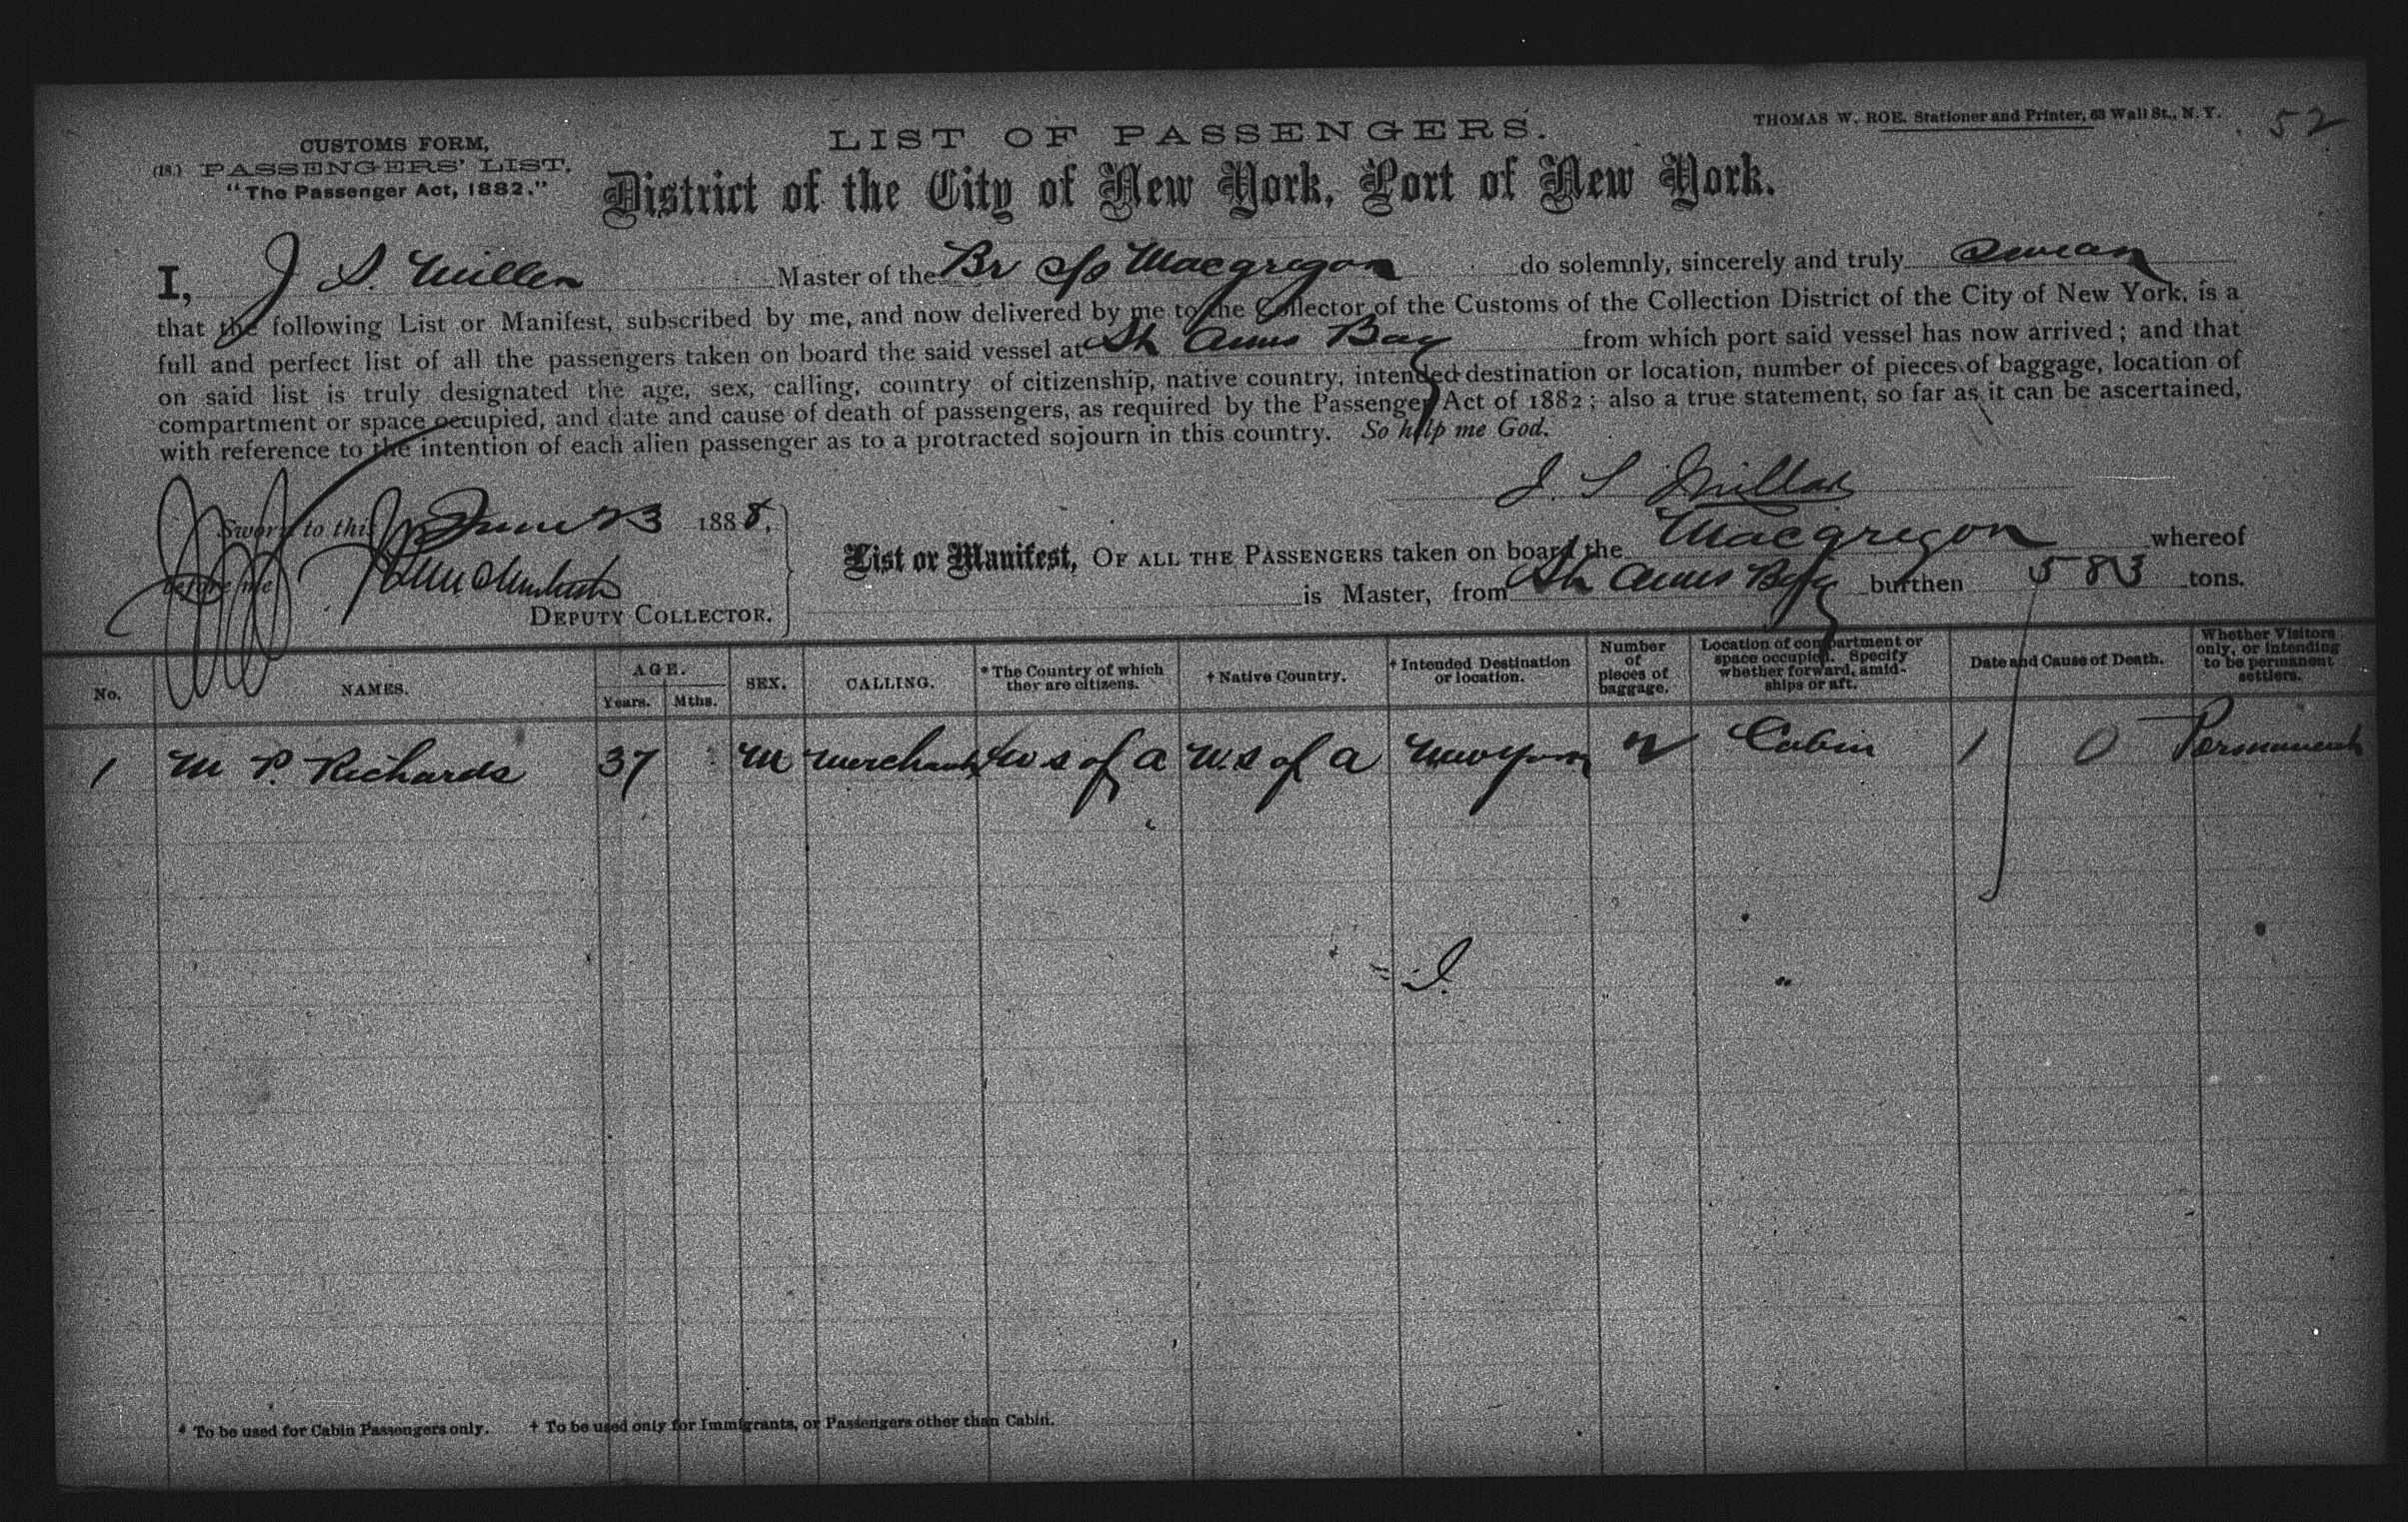 CUSTOMS FORM,
(18.) PASSENGERS' LIST.
"The Passenger Act, 1882."
LIST OF PASSENGERS.
THOMAS W. ROE. Stationer and Printer, 63 Wall St., N. Y.
52
District of the City of New York, Port of New York.
I, J S. Miller Master of the Br s/s Macgregor do solemnly, sincerely and truly swear
that the following List or Manifest, subscribed by me, and now delivered by me to the Collector of the Customs of the Collection District of the City of New York, is a
full and perfect list of all the passengers taken on board the said vessel at St Anns Bay from which port said vessel has now arrived; and that
on said list is truly designated the age, sex, calling, country of citizenship, native country, intended destination or location, number of pieces of baggage, location of
compartment or space occupied, and date and cause of death of passengers, as required by the Passenger Act of 1882; also a true statement, so far as it can be ascertained,
with reference to the intention of each alien passenger as to a protracted sojourn in this country. So help me God.
J. S Millar
Sworn to this June 23 1888,
before me
DEPUTY COLLECTOR.
List or Manifest, OF ALL THE PASSENGERS taken on board the Macgregor whereof
is Master, from St Anns Bay burthen 583 tons.
No. NAMES. AGE. Years. Mths. SEX. CALLING. * The Country of which they are citizens. † Native Country. † Intended Destination or location. Number of pieces of baggage. Location of compartment or space occupied. Specify whether forward, amidships or aft. Date and Cause of Death. Whether Visitors only, or intending to be permanent settlers.
1 M P. Richards 37 M Merchant U S of A U.S of A New York 2 Cabin 1 0 Permanent
* To be used for Cabin Passengers only. † To be used only for Immigrants, or Passengers other than Cabin.